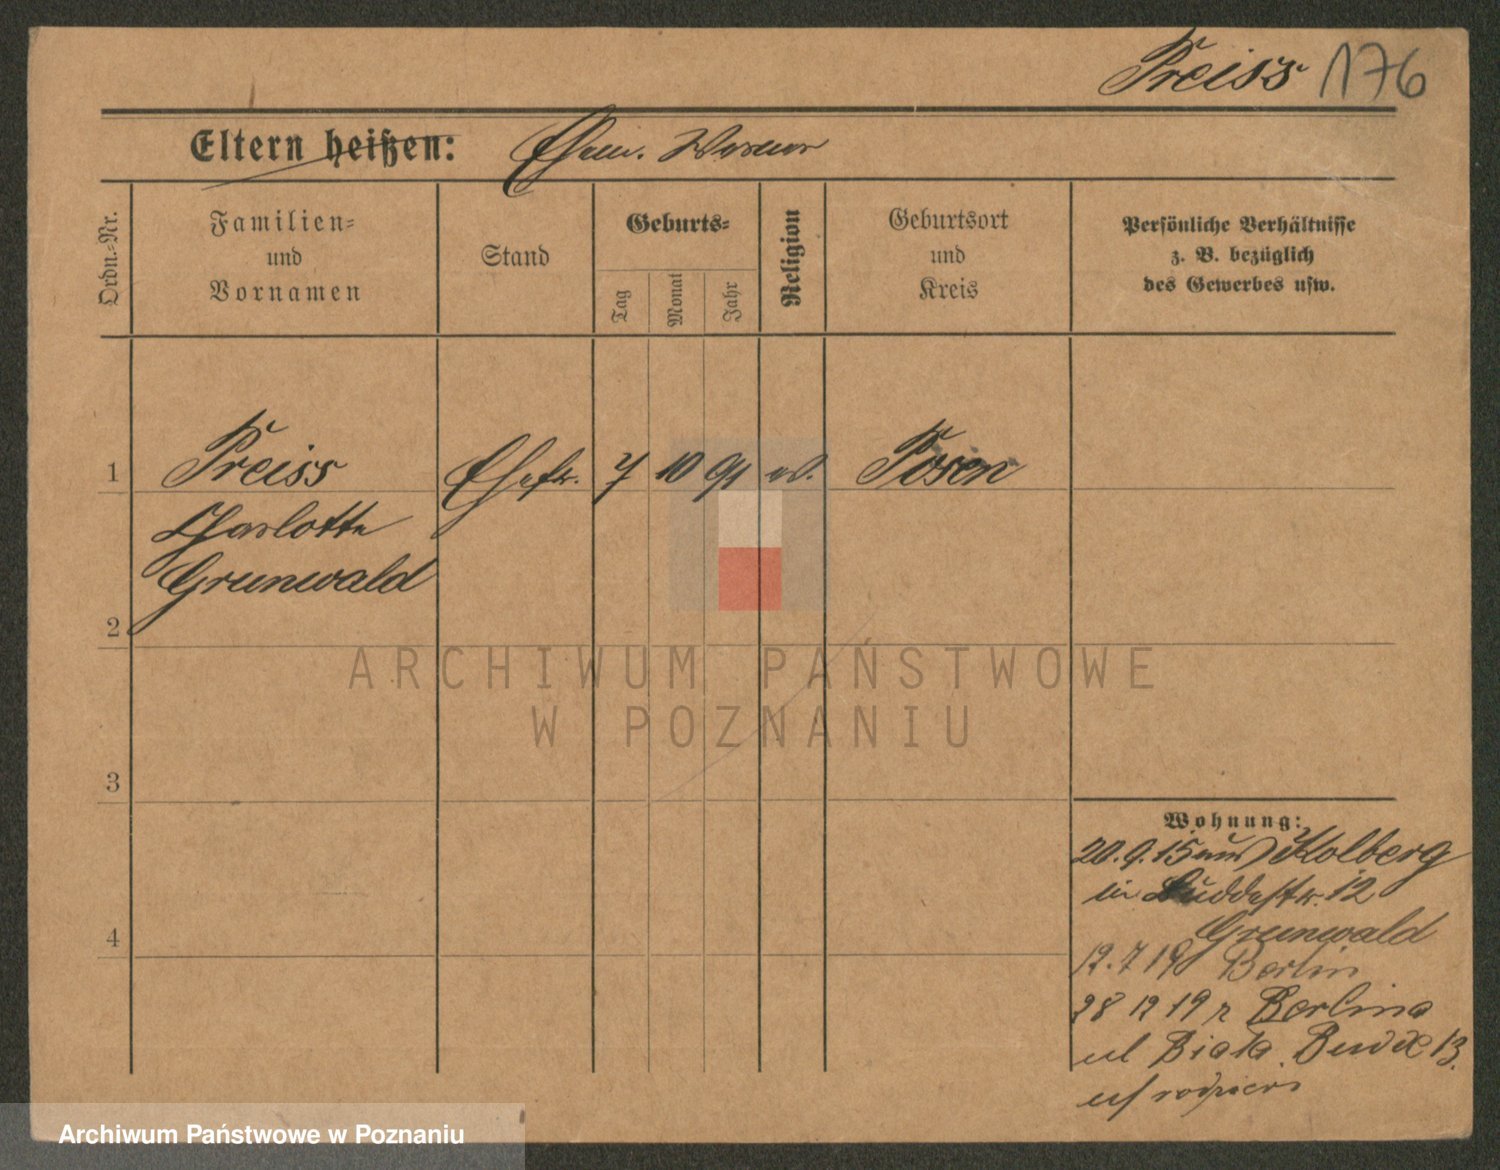 Preiss 176
Eltern heißen: Ehem. Werner
Ordn.-Nr.
Familien-
und
Vornamen
Stand
Geburts-
Tag
Monat
Jahr
Religion
Geburtsort
und
Kreis
Persönliche Verhältnisse
z. B. bezüglich
des Gewerbes usw.
1 Preiss Ehefr. 7 10 91 ev. Posen
Charlotte
Grunwald
2
3
4
Wohnung:
20.9.15 aus Kolberg
in Buddestr. 12
Grunwald
12.7 19 Berlin
28 12 19 z Berlina
ul Biała 13.
ul
ARCHIWUM PAŃSTWOWE
W POZNANIU
Archiwum Państwowe w Poznaniu